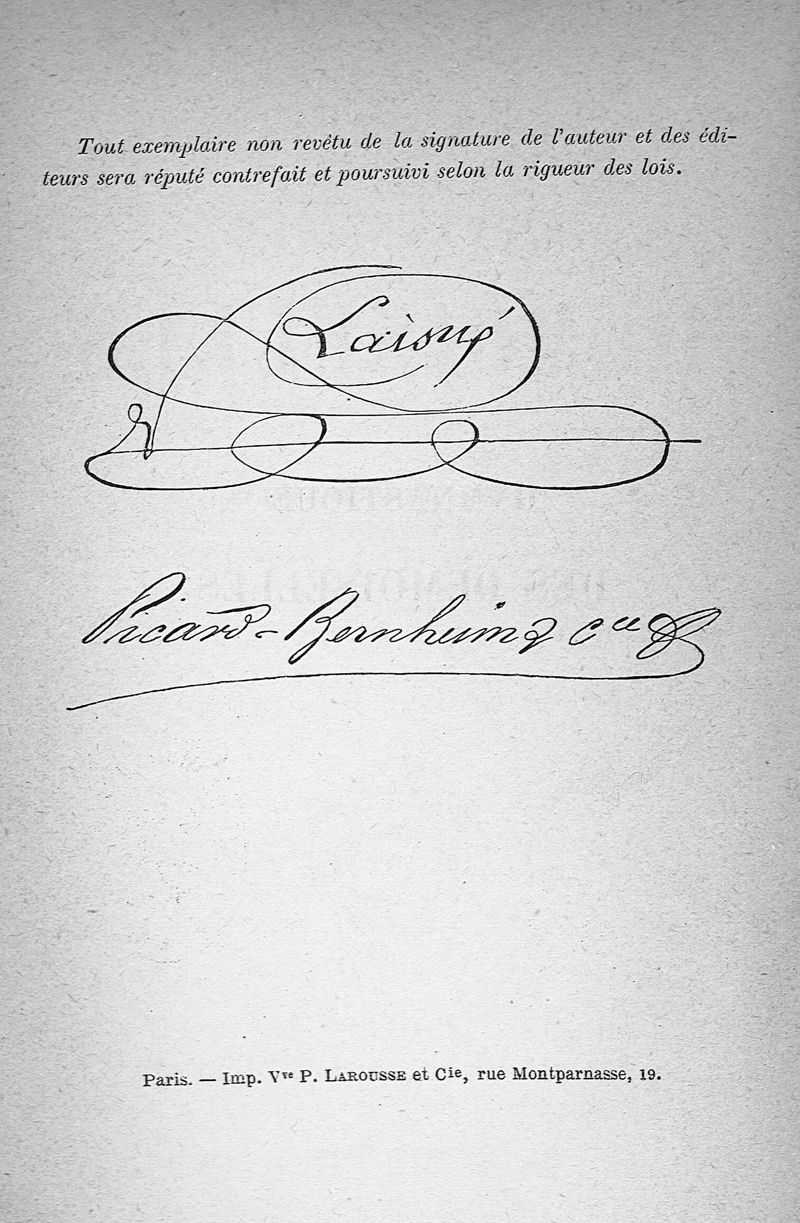 Tout exemplaire non revêtu de la signature de l'auteur et des édi-
teurs sera réputé contrefait et poursuivi selon la rigueur des lois.
Laisné
Picard-Bernheim & Cie
Paris. — Imp. Vve P. LAROUSSE et Cie, rue Montparnasse, 19.